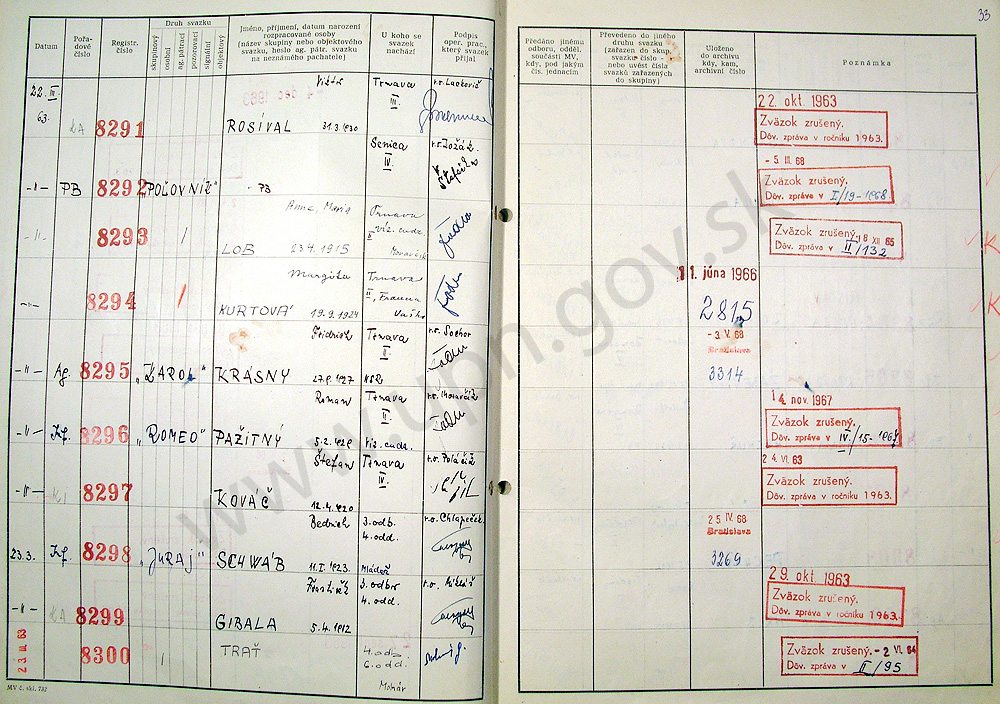 33
Datum
Pořadové číslo
Registr. číslo
Druh svazku
skupinový
osobní
ag. pátrací
pozorovací
signální
objektový
Jméno, příjmení, datum narození
rozpracované osoby
(název skupiny nebo objektového
svazku, heslo ag. pátr. svazku
na neznámého pachatele)
U koho se
svazek
nachází
Podpis
oper. prac.,
který svazek
přijal
Předáno jinému
odboru, odděl.
součásti MV,
kdy, pod jakým
čís. jednacím
Převedeno do jiného
druhu svazku
(zařazen do skup.
svazku číslo -
nebo uvést čísla
svazků zařazených
do skupiny)
Uloženo
do archivu
kdy, kam,
archivní číslo
Poznámka
22. III.
63.
8291
Viktor
ROSÍVAL 31.3.1930
Trnava
III.
22. okt. 1963
Zväzok zrušený.
Dôv. zpráva v ročníku 1963.
-"- PB 8292 "POĽOVNÍK" - PB
Senica
IV.
- 5. III. 68
Zväzok zrušený.
Dôv. zpráva v I/19-1968.
-"- 8293 /
Anna, Maria
LOB 23.4.1915
Trnava
II
Zväzok zrušený. 18 XII 65
Dôv. zpráva v II/132
K
-"- 8294 /
Margita
KURTOVÁ 19.9.1924
Trnava
11. júna 1966
2815
K
-"- Ag. 8295 "KAROL"
Fridrich
KRÁSNY
Trnava
II.
r.o. Sochor
- 3 V. 68
Bratislava
3314
-"- 8296 "ROMEO"
Roman
PAŽITNÝ
Trnava
II.
14. nov. 1967
Zväzok zrušený.
Dôv. zpráva v IV/15-1967
-"- 8297
Štefan
KOVÁČ 12.4.1920
Trnava
IV.
24. VI. 63
Zväzok zrušený.
Dôv. zpráva v ročníku 1963.
23.3. 8298 "JURAJ"
Bedrich
SCHWÁB 11.I.1923.
3. odb.
4. odd.
Mládež
r.o. Chlapeček
25 IV. 68
Bratislava
3269
-"- 8299
František
GIBALA 5.4.1912
3. odbor
4. odd.
29. okt. 1963
Zväzok zrušený.
Dôv. zpráva v ročníku 1963.
23 III 63
8300
TRAŤ
4. odb.
6. odd.
Molnár
Zväzok zrušený. - 2 VI. 64
Dôv. zpráva v II/95
MV č. skl. 732
www.upn.gov.sk